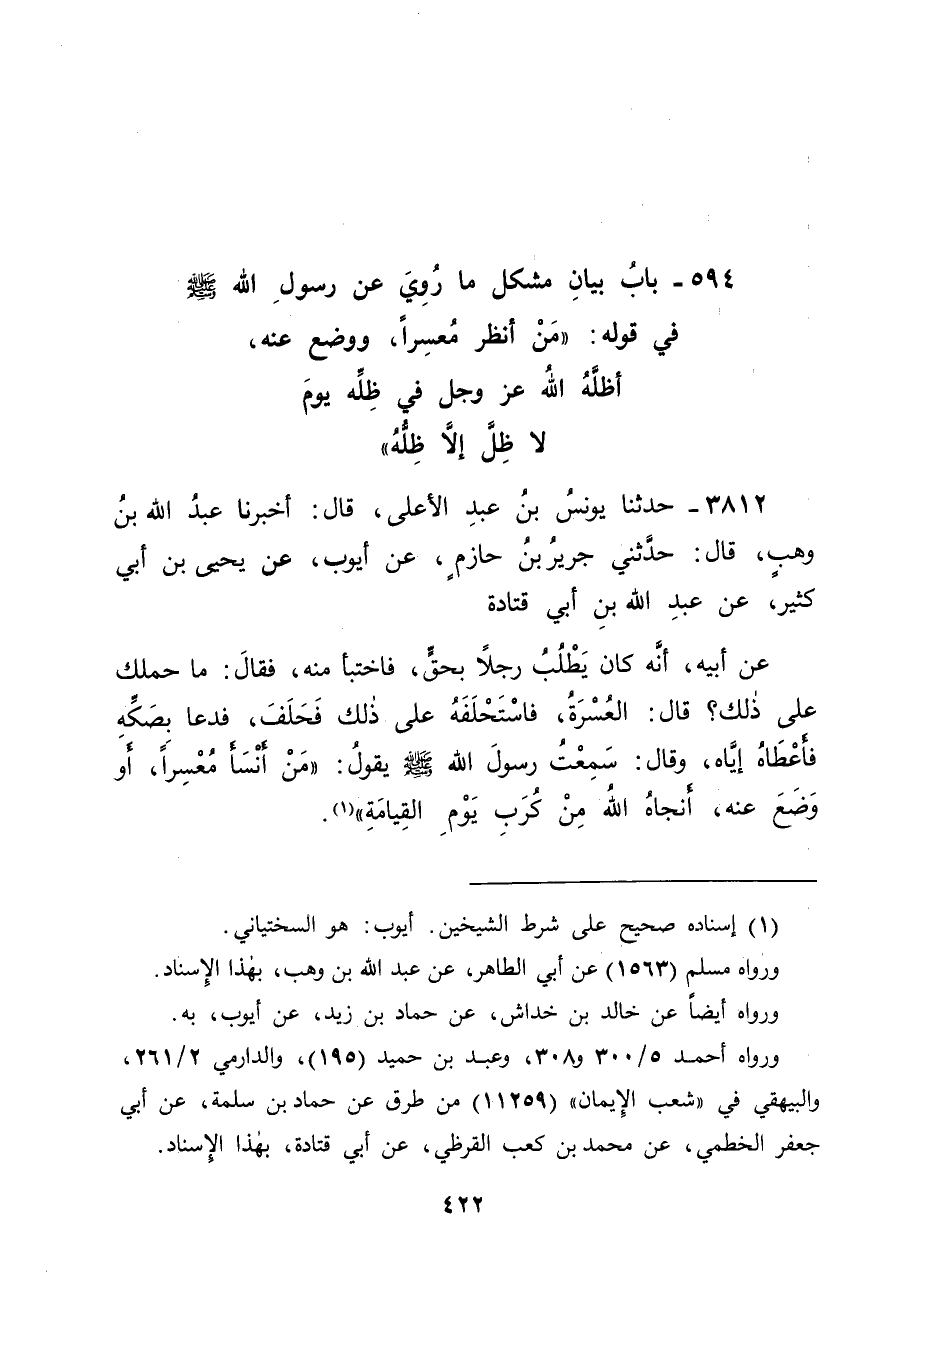 ٥٩٤ـ بابُ بيانِ مشكل ما رُوِيَ عن رسولِ الله ﷺ
في قوله: «مَنْ أنظر مُعسِراً، ووضع عنه،
أظلَّهُ اللهُ عز وجل في ظِلِّه يومَ
لا ظِلَّ إلَّا ظِلُّهُ»
٣٨١٢ـ حدثنا يونسُ بنُ عبدِ الأعلى، قال: أخبرنا عبدُ الله بنُ
وهبٍ، قال: حدَّثني جريرُ بنُ حازمٍ، عن أيوب، عن يحيى بن أبي
كثير، عن عبدِ الله بنِ أبي قتادة
عن أبيه، أنَّه كان يَطْلُبُ رجلاً بحقٍّ، فاختبأ منه، فقالَ: ما حملك
على ذٰلك؟ قال: العُسْرَةُ، فاسْتَحْلَفَهُ على ذٰلك فَحَلَفَ، فدعا بِصَكِّهِ
فأَعْطَاهُ إيَّاه، وقال: سَمِعْتُ رسولَ الله ﷺ يقولُ: «مَنْ أَنْسَأَ مُعْسِراً، أَو
وَضَعَ عنه، أَنجاهُ اللهُ مِنْ كُرَبِ يَوْمِ القِيامَةِ»(١).
(١) إسناده صحيح على شرط الشيخين. أيوب: هو السختياني.
ورواه مسلم (١٥٦٣) عن أبي الطاهر، عن عبد الله بن وهب، بهٰذا الإِسناد.
ورواه أيضاً عن خالد بن خداش، عن حماد بن زيد، عن أيوب، به.
ورواه أحمد ٣٠٠/٥ و٣٠٨، وعبد بن حميد (١٩٥)، والدارمي ٢٦١/٢،
والبيهقي في «شعب الإِيمان» (١١٢٥٩) من طرق عن حماد بن سلمة، عن أبي
جعفر الخطمي، عن محمد بن كعب القرظي، عن أبي قتادة، بهٰذا الإِسناد.
٤٢٢